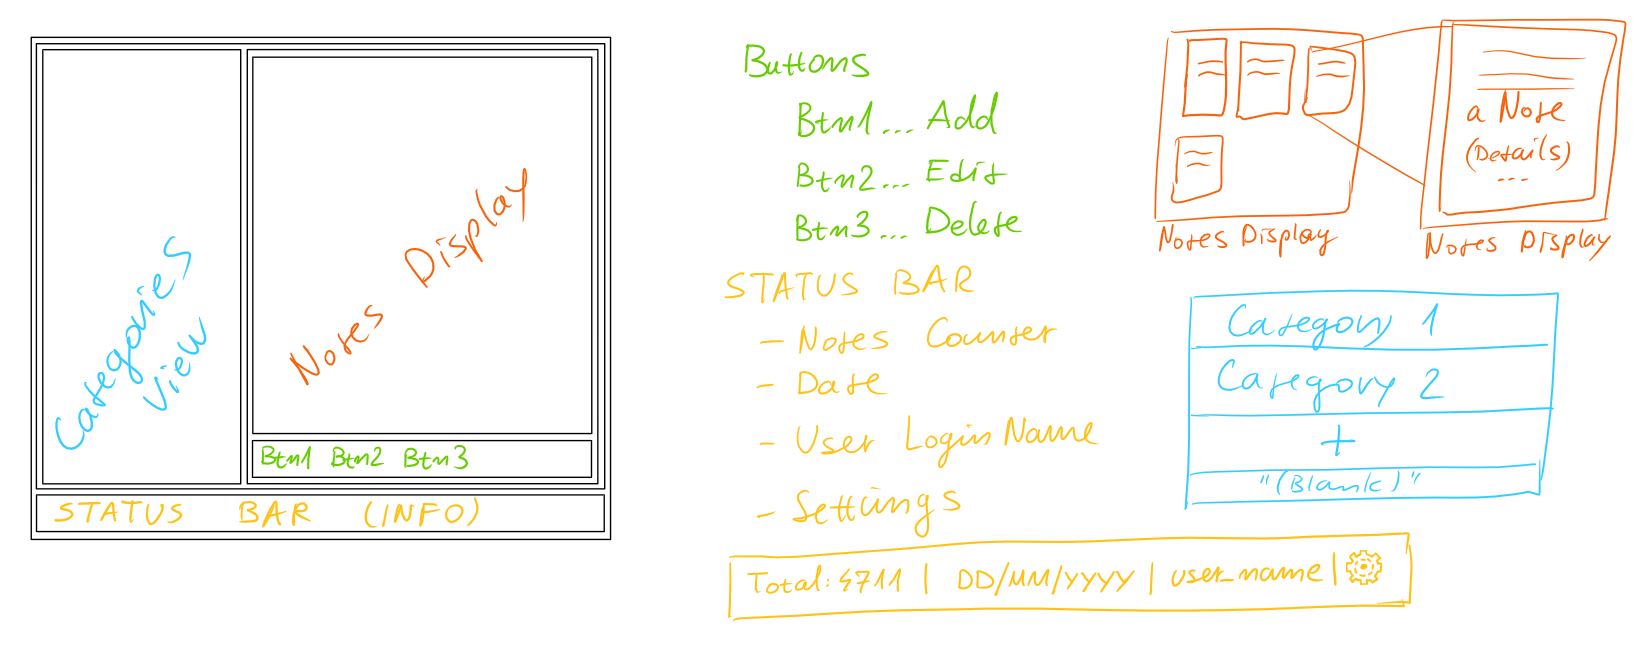 Categories
View
Notes Display
Btn1 Btn2 Btn3
STATUS BAR (INFO)
Buttons
Btn1... Add
Btn2... Edit
Btn3... Delete
STATUS BAR
- Notes Counter
- Date
- User Login Name
- Settings
Total: 4711 | DD/MM/YYYY | user_name |
a Note
(Details)
...
Notes Display
Notes Display
Category 1
Category 2
+
"(Blank)"